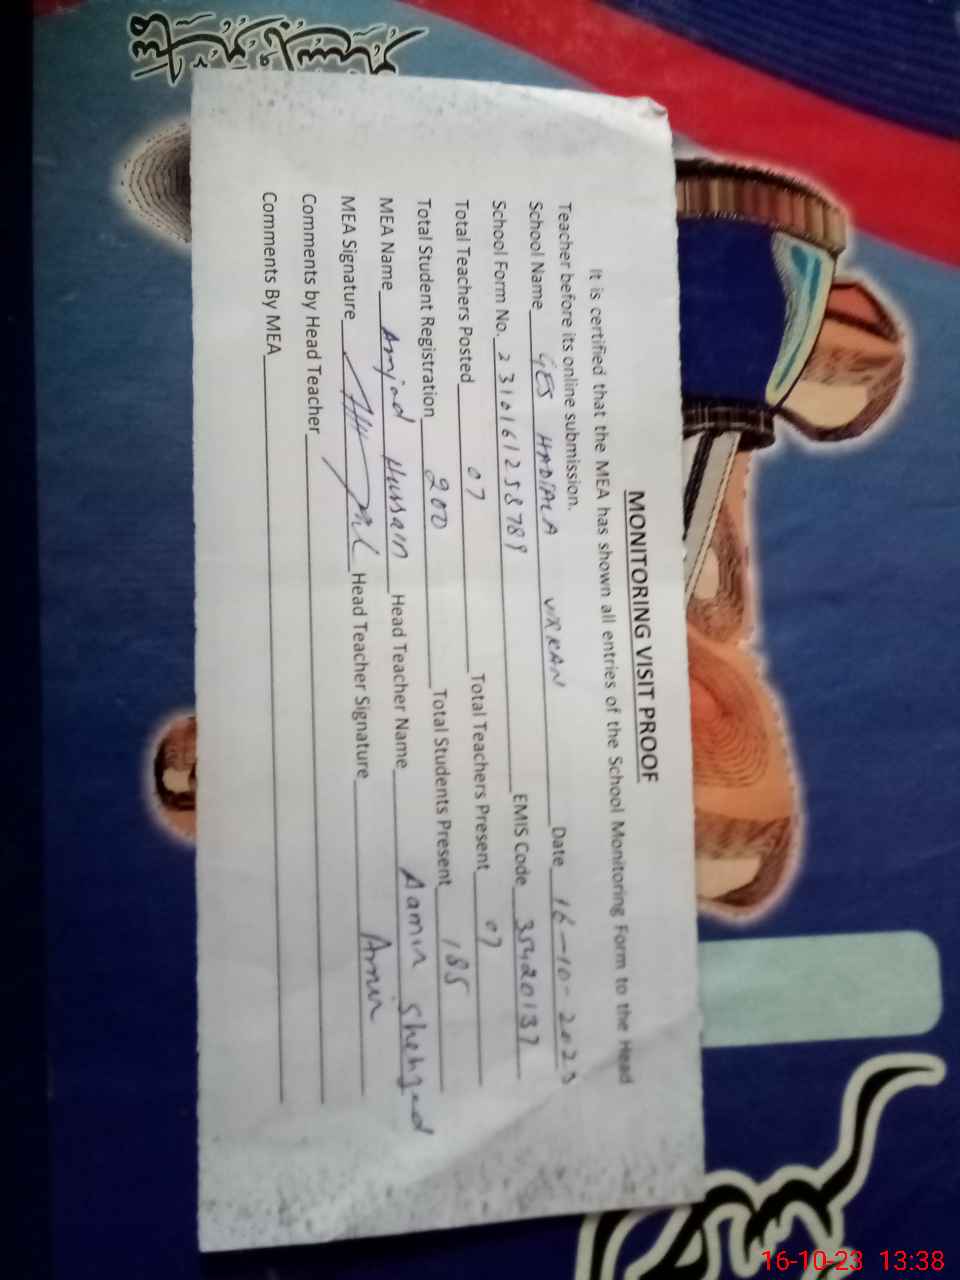 MONITORING VISIT PROOF
It is certified that the MEA has shown all entries of the School Monitoring Form to the Head
Teacher before its online submission.
School Name GES HADIALA VIRRAN Date 16-10-2023
School Form No. 2310161258789 EMIS Code 35420137
Total Teachers Posted 07 Total Teachers Present 07
Total Student Registration 200 Total Students Present 185
MEA Name Amjad Hussain Head Teacher Name Aamir Shehzad
MEA Signature Head Teacher Signature Amir
Comments by Head Teacher
Comments By MEA
16-10-23 13:38